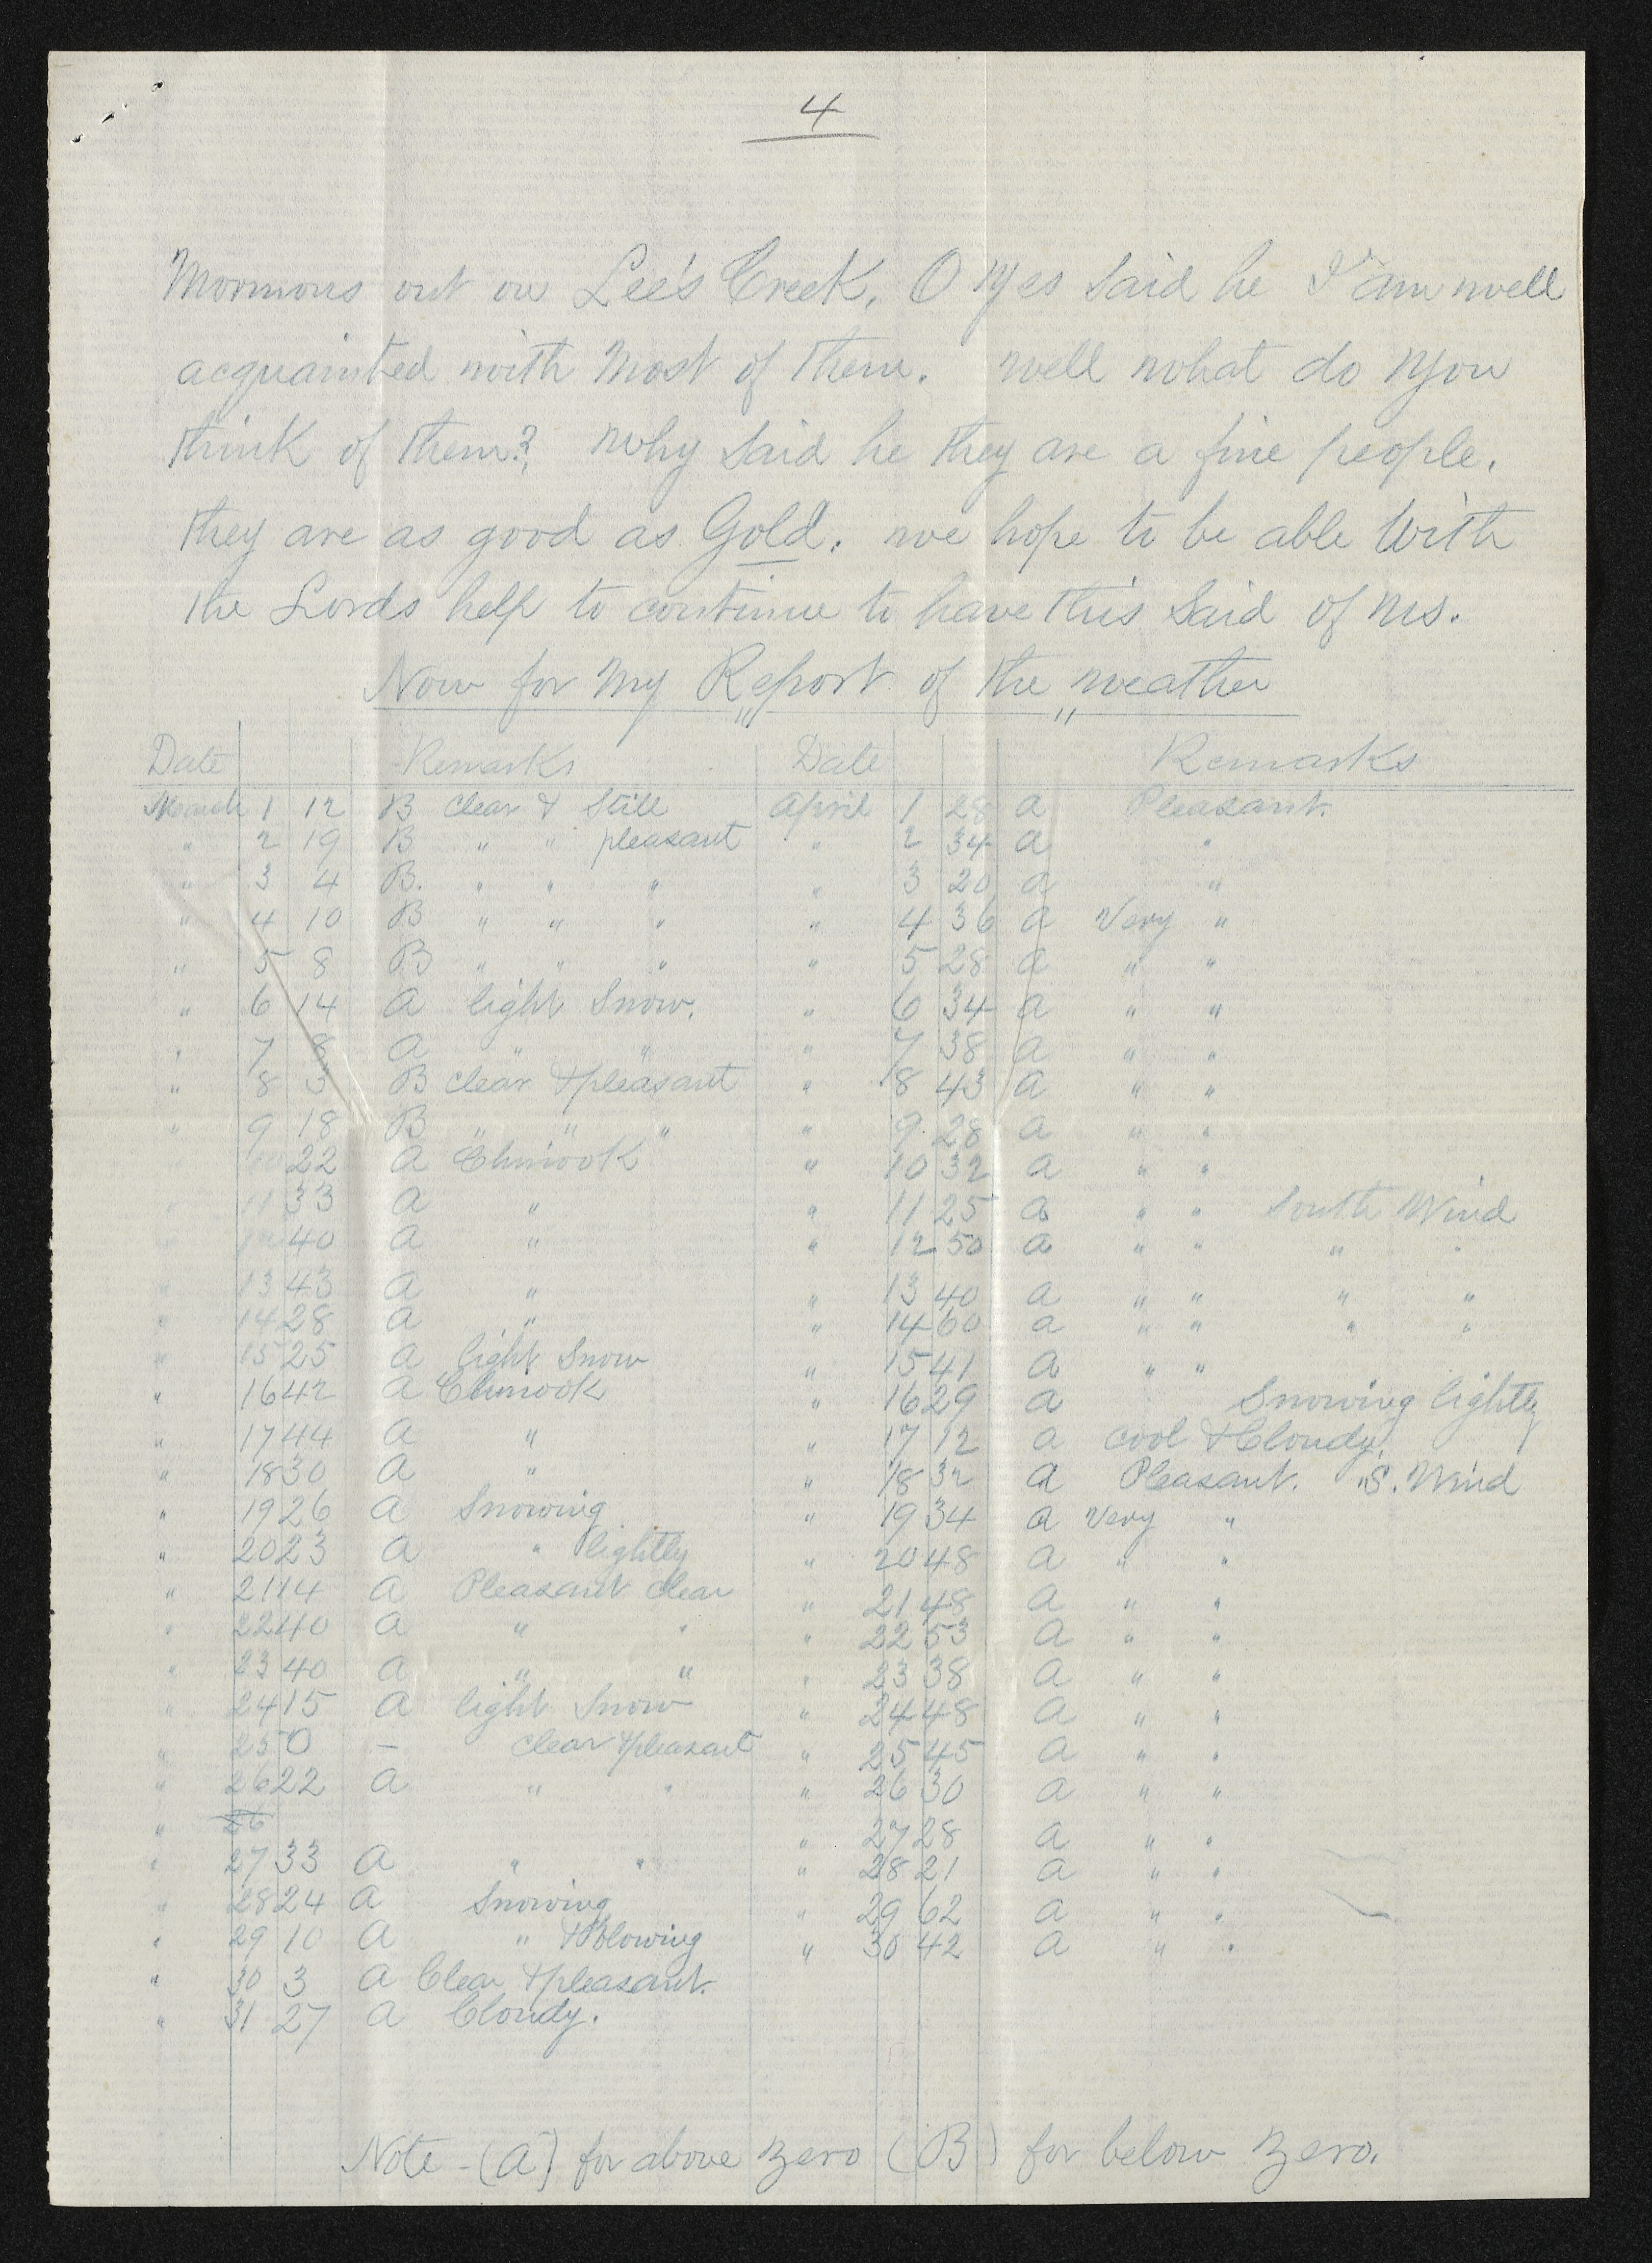 4
Mormons out on Lee's Creek, O Yes said he I am well
acquainted with Most of them. well what do You
think of them? why said he they are a fine people,
they are as good as Gold. we hope to be able With
the Lords help to continue to have this said of us.
Now for My Report of the weather
Date Remarks Date Remarks
March 1 12 B clear & Still April 1 28 a Pleasant.
" 2 19 B " " pleasant " 2 34 a "
" 3 4 B. " " " " 3 20 a "
" 4 10 B " " " " 4 36 a Very "
" 5 8 B " " " " 5 28 a " "
" 6 14 a light Snow. " 6 34 a " "
" 7 8 a " " " 7 38 a " "
" 8 3 B clear & pleasant " 8 43 a " "
" 9 18 B " " " " 9 28 a " "
" 10 22 a Chinook " 10 32 a " "
" 11 33 a " " 11 25 a " " South Wind
" 12 40 a " " 12 50 a " " " "
" 13 43 a " " 13 40 a " " " "
" 14 28 a " " 14 60 a " " " "
" 15 25 a light Snow " 15 41 a " "
" 16 42 a Chinook " 16 29 a Snowing lightly
" 17 44 a " " 17 12 a cool & Cloudy.
" 18 30 a " " 18 32 a Pleasant. S. Wind
" 19 26 a Snowing " 19 34 a Very "
" 20 23 a " lightly " 20 48 a " "
" 21 14 a Pleasant clear " 21 48 a " "
" 22 40 a " " " 22 53 a " "
" 23 40 a " " " 23 38 a " "
" 24 15 a light Snow " 24 48 a " "
" 25 0 – clear & pleasant " 25 45 a " "
" 26 22 a " " " 26 30 a " "
" 26 " 27 28 a " "
" 27 33 a " " " 28 21 a " "
" 28 24 a Snowing " 29 62 a " "
" 29 10 a " & Blowing " 30 42 a " "
" 30 3 a Clear & pleasant.
" 31 27 a Cloudy.
Note - (a) for above Zero (B) for below Zero.